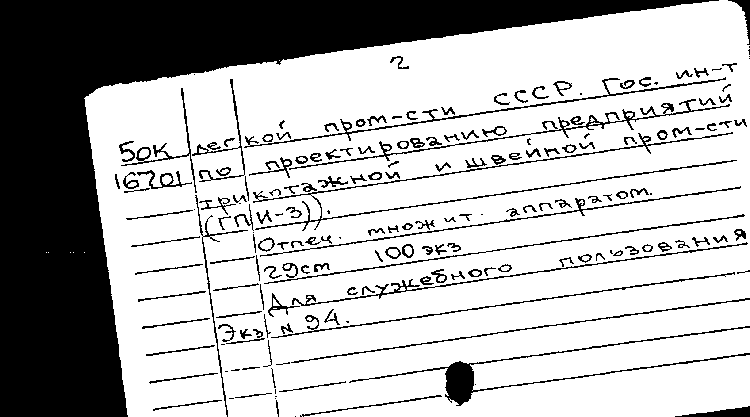 2
50К легкой пром-сти СССР. Гос. ин-т
16701 по проектированию предприятий
трикотажной и швейной пром-сти
(ГПИ-3)).
Отпеч. множит. аппаратом.
29см 100 экз
Для служебного пользования
Экз. N 94.